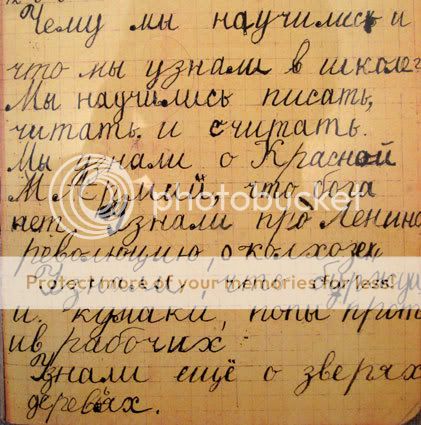 Чему мы научились и
что мы узнали в школе?
Мы научились писать,
читать и считать.
Мы узнали о Красной
что бога
нет. Узнали про Ленина
революцию, о колхозе
Узнали, что буржуи
и кулаки, попы прот
ив рабочих
Узнали ещё о зверях
деревьях.
photobucket
Protect more of your memories for less!